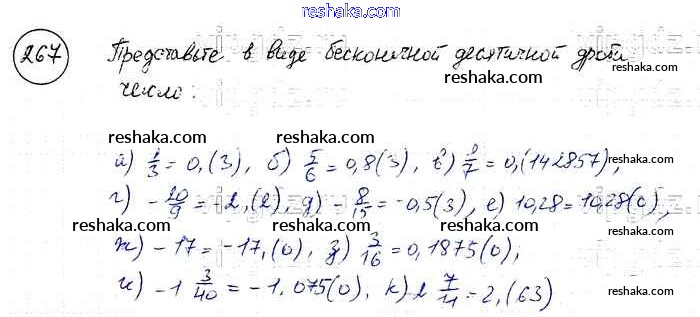 reshaka.com
267 Представьте в виде бесконечной десятичной дроби
число:
reshaka.com
reshaka.com
reshaka.com
reshaka.com
а) 1/3 = 0,(3), б) 5/6 = 0,8(3), в) 1/7 = 0,(142857),
reshaka.com
г) -20/9 = -2,(2), д) -8/15 = -0,5(3), е) 10,28 = 10,28(0),
reshaka.com
reshaka.com
reshaka.com
ж) -17 = -17,(0), з) 3/16 = 0,1875(0),
reshaka.com
reshaka.com
и) -1 3/40 = -1,075(0), к) 2 7/11 = 2,(63)
reshaka.com